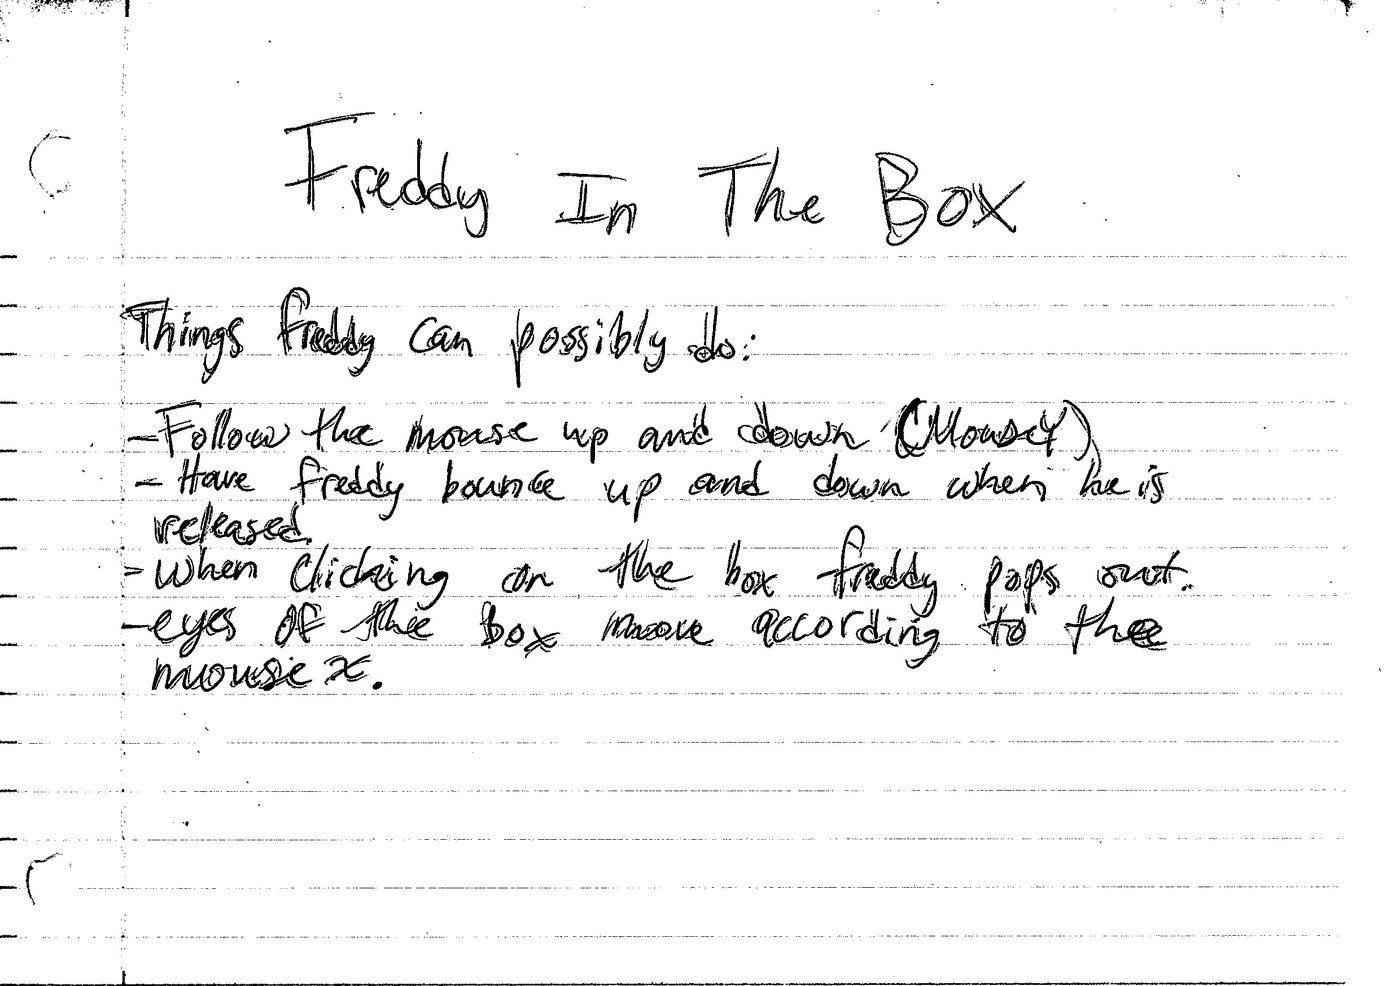 Freddy In The Box
Things freddy can possibly do:
-Follow the mouse up and down (MouseY)
- Have freddy bounce up and down when he is
released.
-when clicking on the box freddy pops out.
-eyes of the box move according to the
mouse x.